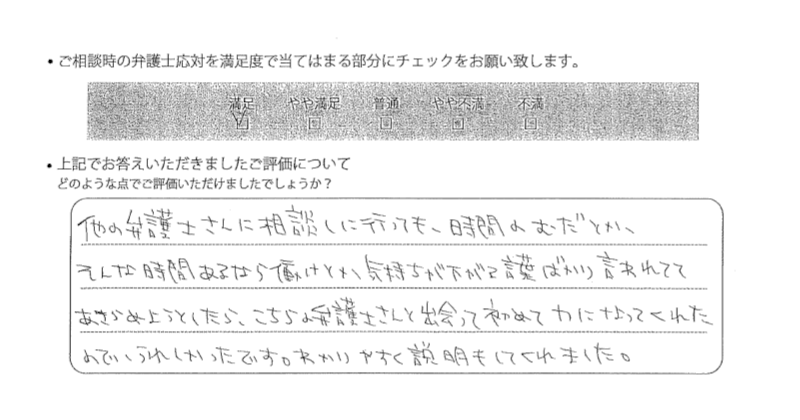 • ご相談時の弁護士応対を満足度で当てはまる部分にチェックをお願い致します。
満足 やや満足 普通 やや不満 不満
• 上記でお答えいただきましたご評価について
どのような点でご評価いただけましたでしょうか？
他の弁護士さんに相談しに行っても、時間のむだとか、
そんな時間あるなら働けとか、気持ちが下がる言葉ばかり言われてて
あきらめようとしたら、こちらの弁護士さんと出会って初めて力になってくれた
ので、うれしかったです。わかりやすく説明もしてくれました。